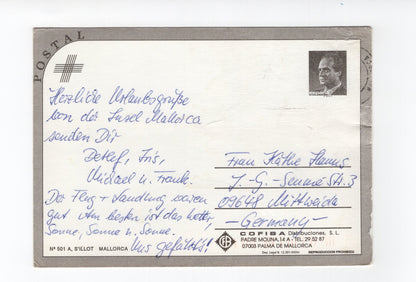 POSTAL
Herzliche Urlaubsgrüße
von der Insel Mallorca
senden Dir
Detlef, Iris,
Michael u. Frank.
Der Flug + Landung waren
gut. Am besten ist das Wetter,
Sonne, Sonne u. Sonne.
Uns gefällt's!
Frau Käthe
J.-G.-Seume Str. 3
09648 Mittweida
- Germany -
Nº 501 A, S'ILLOT MALLORCA
COFIBA Distribuciones, S. L.
PADRE MOLINA, 14 A - TEL. 29 52 87
07003 PALMA DE MALLORCA
REPRODUCCION PROHIBIDA